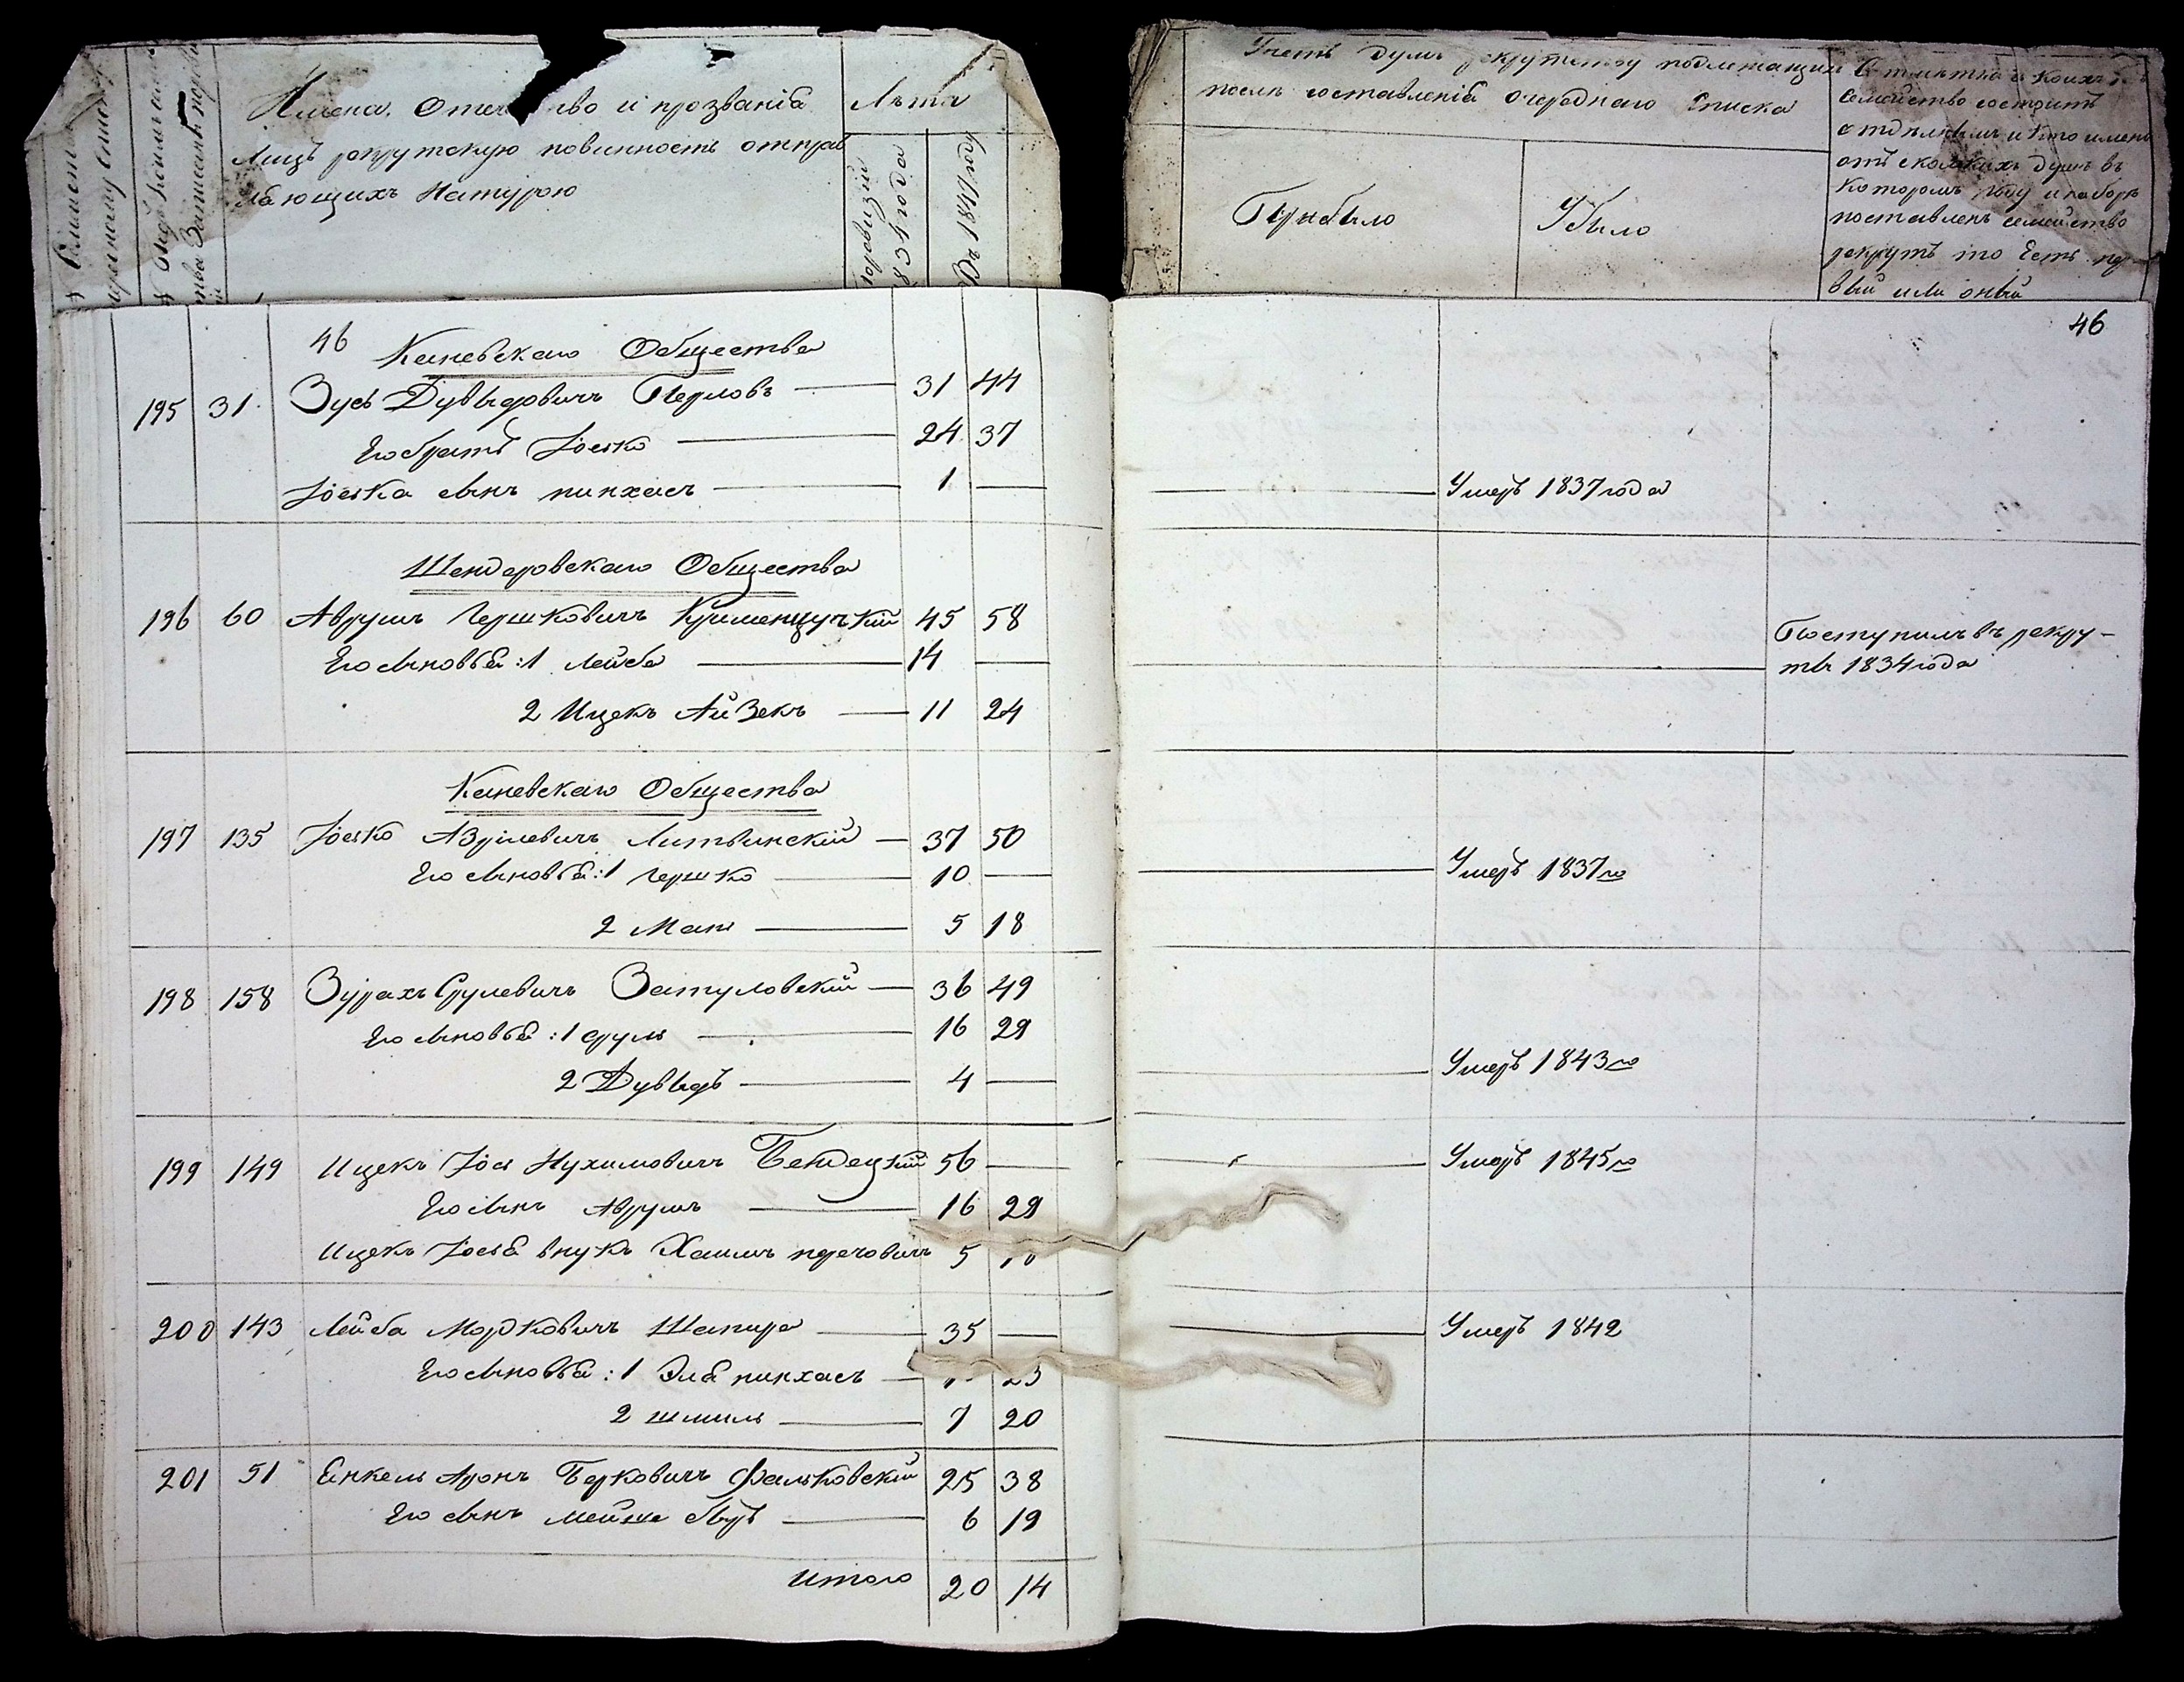 Имена, Отечество и прозваніѣ
Лицъ рекрутскую повинность отправ
ляющихъ Натурою
Лѣта
По ревизіи
834 года
На 1847 год
Счетъ душъ рекрутству подлежащихъ
послѣ составленіѣ очереднаго Списка
Прибыло
Убыло
Отмѣтка о коихъ
Семейство состоитъ
отдѣльнымъ и кто имено
отъ сколькихъ душъ въ
которомъ году и наборѣ
поставленъ семейство
рекрутъ то Есть
46
46
Каневскаго Общества
195 31 Зусь Дувыдовичъ Перловъ 31 44
Его братъ Іосько 24 37
Іоська сынъ пинхасъ 1 — Умеръ 1837 года
Шендеровскаго Общества
196 60 Аврумъ Гершковичъ Кременчуцкій 45 58
Его сыновьѣ: 1 Лейба 14 — Поступилъ въ рекру-
ты 1834 года
2 Ицекъ Айзекъ 11 24
Каневскаго Общества
197 135 Іосько Азрілевичъ Литвинскій 37 50
Его сыновьѣ: 1 Гершко 10 — Умеръ 1837 го
2 Мат 5 18
198 158 Зурахъ Срулевичъ Затуловскій 36 49
Его сыновьѣ: 1 Сруль 16 29
2 Дувыдъ 4 — Умеръ 1843 го
199 149 Ицекъ Іось Нухимовичъ Бендецкій 56 — Умеръ 1845 го
Его сынъ Аврумъ 16 29
Ицекъ Іосьѣ внукъ Хаимъ перечовичъ 5
200 143 Лейба Морковичъ Шапира 35 — Умеръ 1842
Его сыновьѣ: 1 Эля пинхасъ 23
2 шмиль 7 20
201 51 Енкель Аронъ Берковичъ Фальковскій 25 38
Его сынъ Мейше беръ 6 19
Итого 20 14